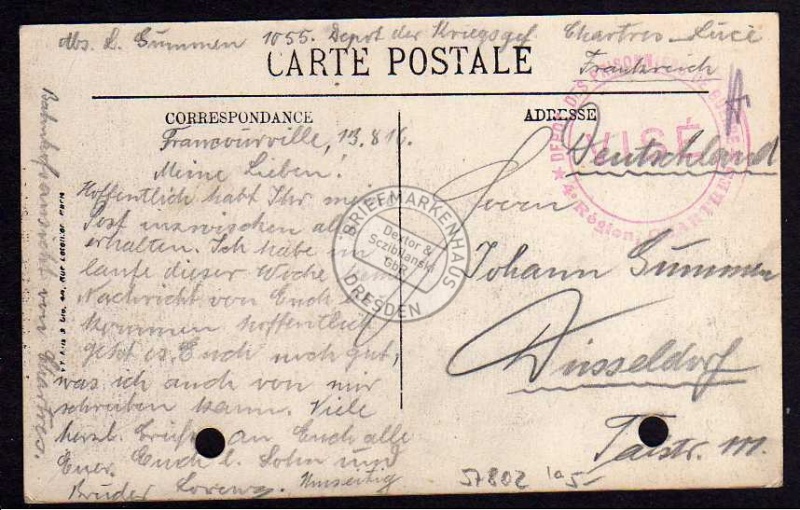 Abs. L. Gummen 1055. Depot der Kriegsgef. Chartres-Lucé
Frankreich
CARTE POSTALE
CORRESPONDANCE
Francourville, 13.8.16.
Meine Lieben!
Hoffentlich habt Ihr meine
Post inzwischen all
erhalten. Ich habe im
laufe dieser Woche
Nachricht von Euch
kommen hoffentlich
geht es Euch noch gut,
was ich auch von mir
schreiben kann. Viele
herzl. Grüße an Euch alle
Euer Euch l. Sohn und
Bruder Lorenz. Umseitig
Bahnhofsansicht von Chartres.
ADRESSE
Deutschland
Herrn
Johann Gummen
Düsseldorf
Talstr. 111.
DEPOT DES PRISONN
VISÉ
4e Région CHARTRES
BRIEFMARKENHAUS
Dektor &
Sczibilanski
GbR
DRESDEN
57802